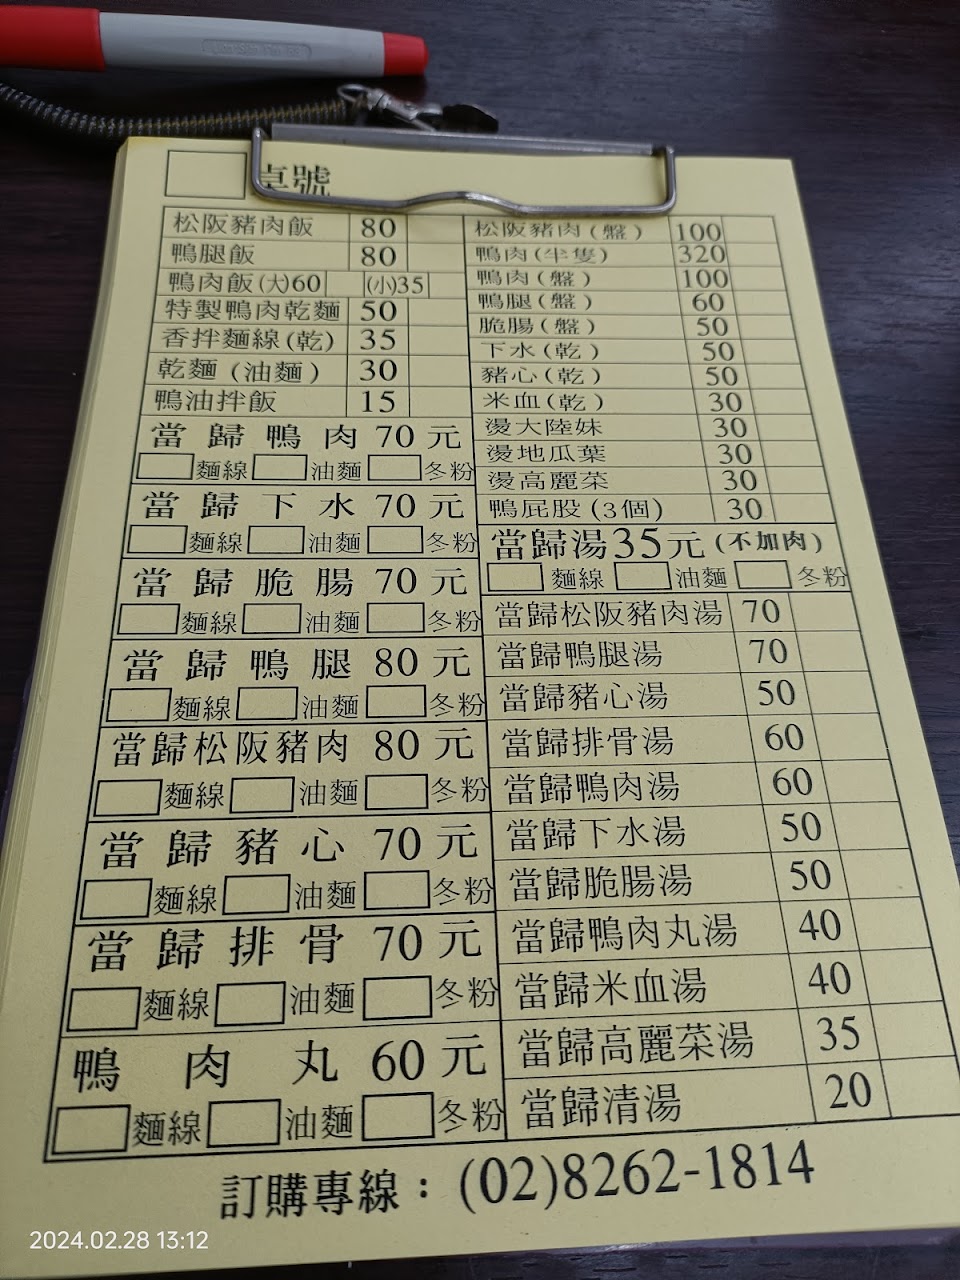 桌號
松阪豬肉飯 80
鴨腿飯 80
鴨肉飯(大)60 (小)35
特製鴨肉乾麵 50
香拌麵線(乾) 35
乾麵(油麵) 30
鴨油拌飯 15
當歸鴨肉 70元
麵線 油麵 冬粉
當歸下水 70元
麵線 油麵 冬粉
當歸脆腸 70元
麵線 油麵 冬粉
當歸鴨腿 80元
麵線 油麵 冬粉
當歸松阪豬肉 80元
麵線 油麵 冬粉
當歸豬心 70元
麵線 油麵 冬粉
當歸排骨 70元
麵線 油麵 冬粉
鴨肉丸 60元
麵線 油麵 冬粉
松阪豬肉(盤) 100
鴨肉(半隻) 320
鴨肉(盤) 100
鴨腿(盤) 60
脆腸(盤) 50
下水(乾) 50
豬心(乾) 50
米血(乾) 30
燙大陸妹 30
燙地瓜葉 30
燙高麗菜 30
鴨屁股(3個) 30
當歸湯35元(不加肉)
麵線 油麵 冬粉
當歸松阪豬肉湯 70
當歸鴨腿湯 70
當歸豬心湯 50
當歸排骨湯 60
當歸鴨肉湯 60
當歸下水湯 50
當歸脆腸湯 50
當歸鴨肉丸湯 40
當歸米血湯 40
當歸高麗菜湯 35
當歸清湯 20
訂購專線：(02)8262-1814
2024.02.28 13:12